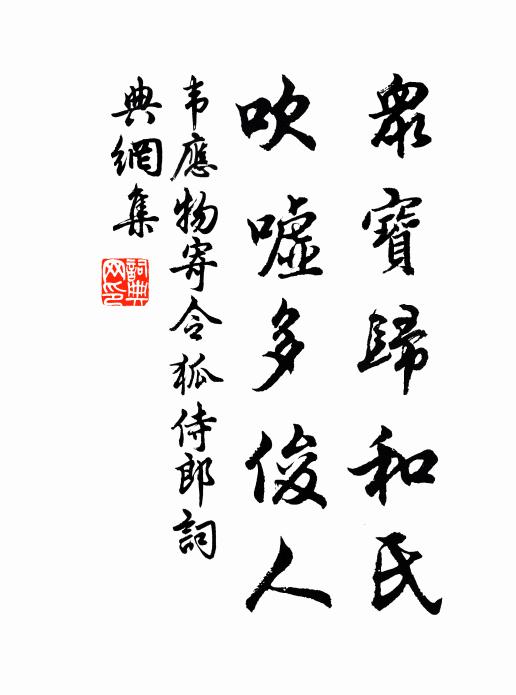 眾寶歸和氏
吹噓多俊人
韋應物寄令狐侍郎詞
典網集
詞典網印